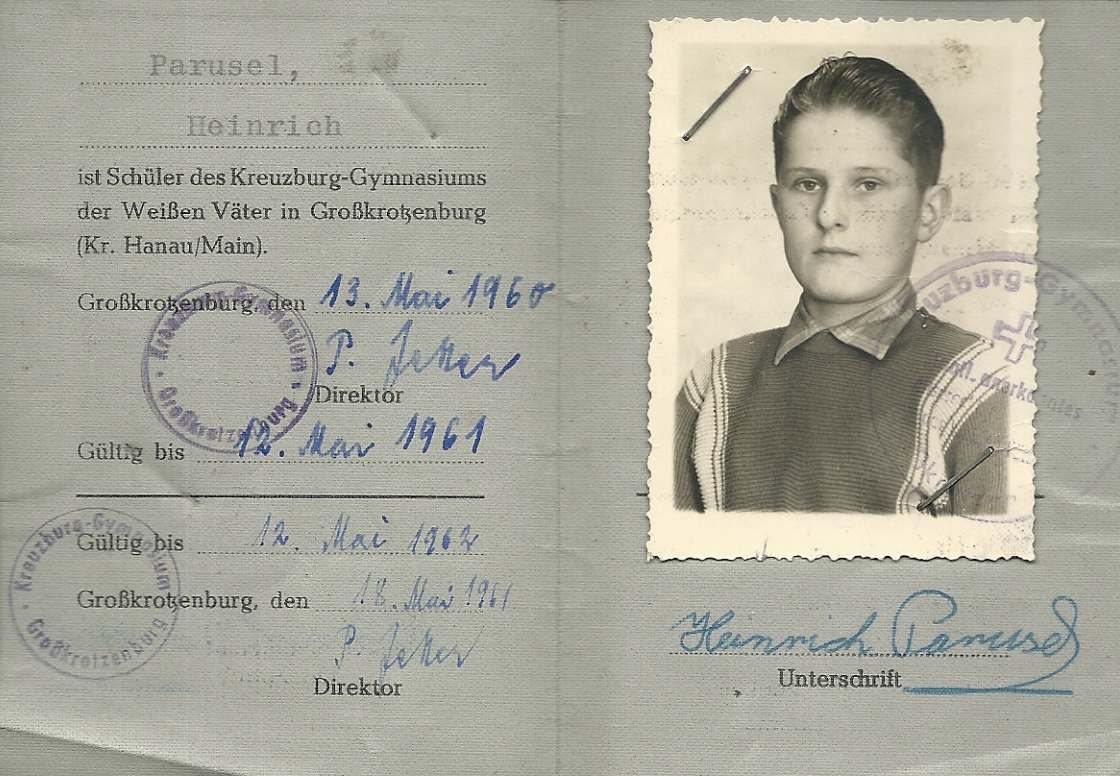 Parusel,
Heinrich
ist Schüler des Kreuzburg-Gymnasiums
der Weißen Väter in Großkrotzenburg
(Kr. Hanau/Main).
Großkrotzenburg, den 13. Mai 1960
P. Jeker
Direktor
Kreuzburg-Gymnasium · Großkrotzenburg ·
Gültig bis 12. Mai 1961
Gültig bis 12. Mai 1962
Großkrotzenburg, den 18. Mai 1961
P. Jeker
Direktor
Kreuzburg-Gymnasium · Großkrotzenburg ·
Kreuzburg-Gymnasium
anerkanntes
Heinrich Parusel
Unterschrift